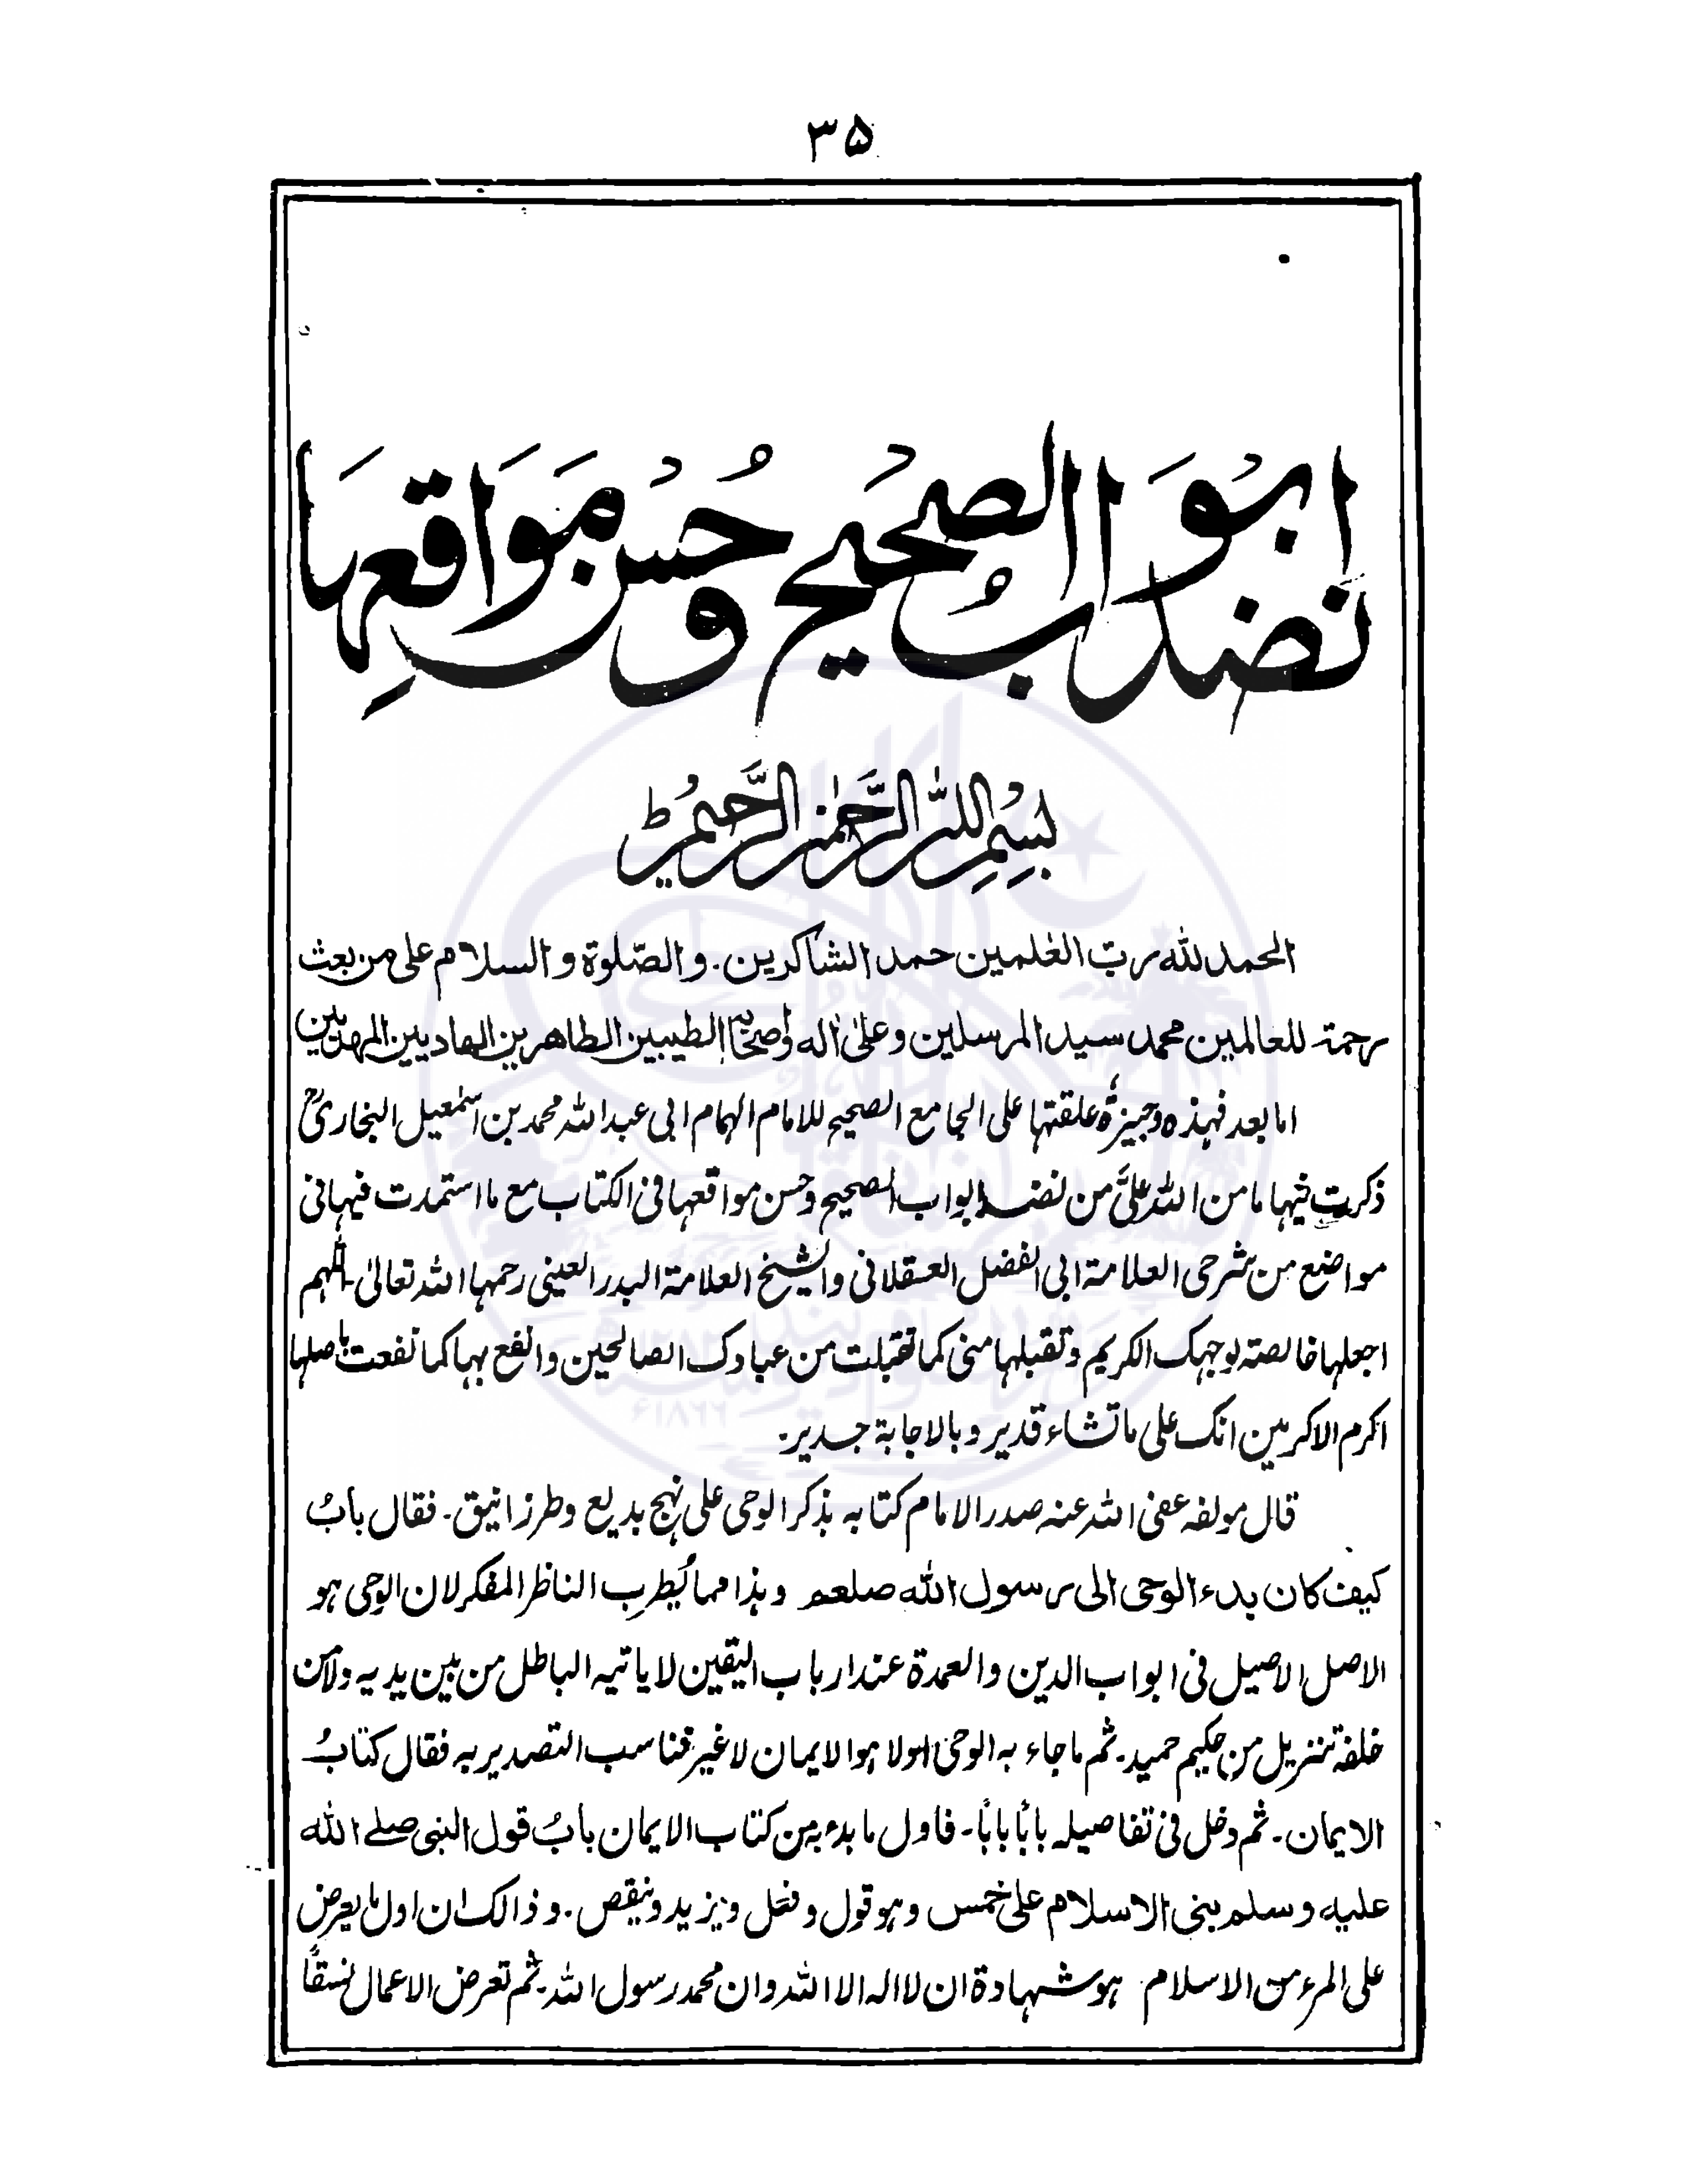 ۳۵
نضد ابواب الصحيح وحسن مواقعها
بسم الله الرحمن الرحيم ط
الحمد لله رب العٰلمين حمد الشاكرين. والصّلوة والسلام على من بعث
رحمة للعالمين محمد سيد المرسلين وعلىٰ اٰله واصحابه الطيبين الطاهرين الهاديين المهديين
اما بعد فهذه وجيزة علقتها على الجامع الصحيح للامام الهمام ابى عبد الله محمد بن اسمٰعيل البخارىؒ
ذكرت فيها ما من الله علىَّ من نضد ابواب الصحيح وحسن مواقعها فى الكتاب مع ما استمدت فيها فى
مواضع من شرحى العلامة ابى الفضل العسقلانى والشيخ العلامة البدر العينى رحمهما الله تعالىٰ ـ اللهم
اجعلها خالصته لوجهك الكريم وتقبلها منى كما تقبلت من عبادك الصالحين وانفع بها كما نفعت باصلها
اكرم الاكرمين انك على ما تشاء قدير وبالاجابة جدير.
قال مولفه عفى الله عنه صدر الامام كتابه بذكر الوحى على نهج بديع وطرز انيق. فقال بابُ
كيف كان بدء الوحى الى رسول الله صلعم وهذا مما يُطرب الناظر المفكر لان الوحى هو
الاصل الاصيل فى ابواب الدين والعمدة عند ارباب اليقين لا ياتيه الباطل من بين يديه ولا من
خلفه تنزيل من حكيم حميد. ثم ما جاء به الوحى اولا هو الايمان لا غير فناسب التصدير به فقال كتابُ
الايمان. ثم دخل فى تفاصيله بابًا بابًا. فاول ما بدء به من كتاب الايمان بابُ قول النبى صلے الله
عليه وسلم بنى الاسلام على خمس وهو قول وفعل ويزيد وينقص. وذالك ان اول ما يعرض
على المرء من الاسلام هو شهادة ان لا اله الا الله وان محمد رسول الله. ثم تعرض الاعمال نسقًا